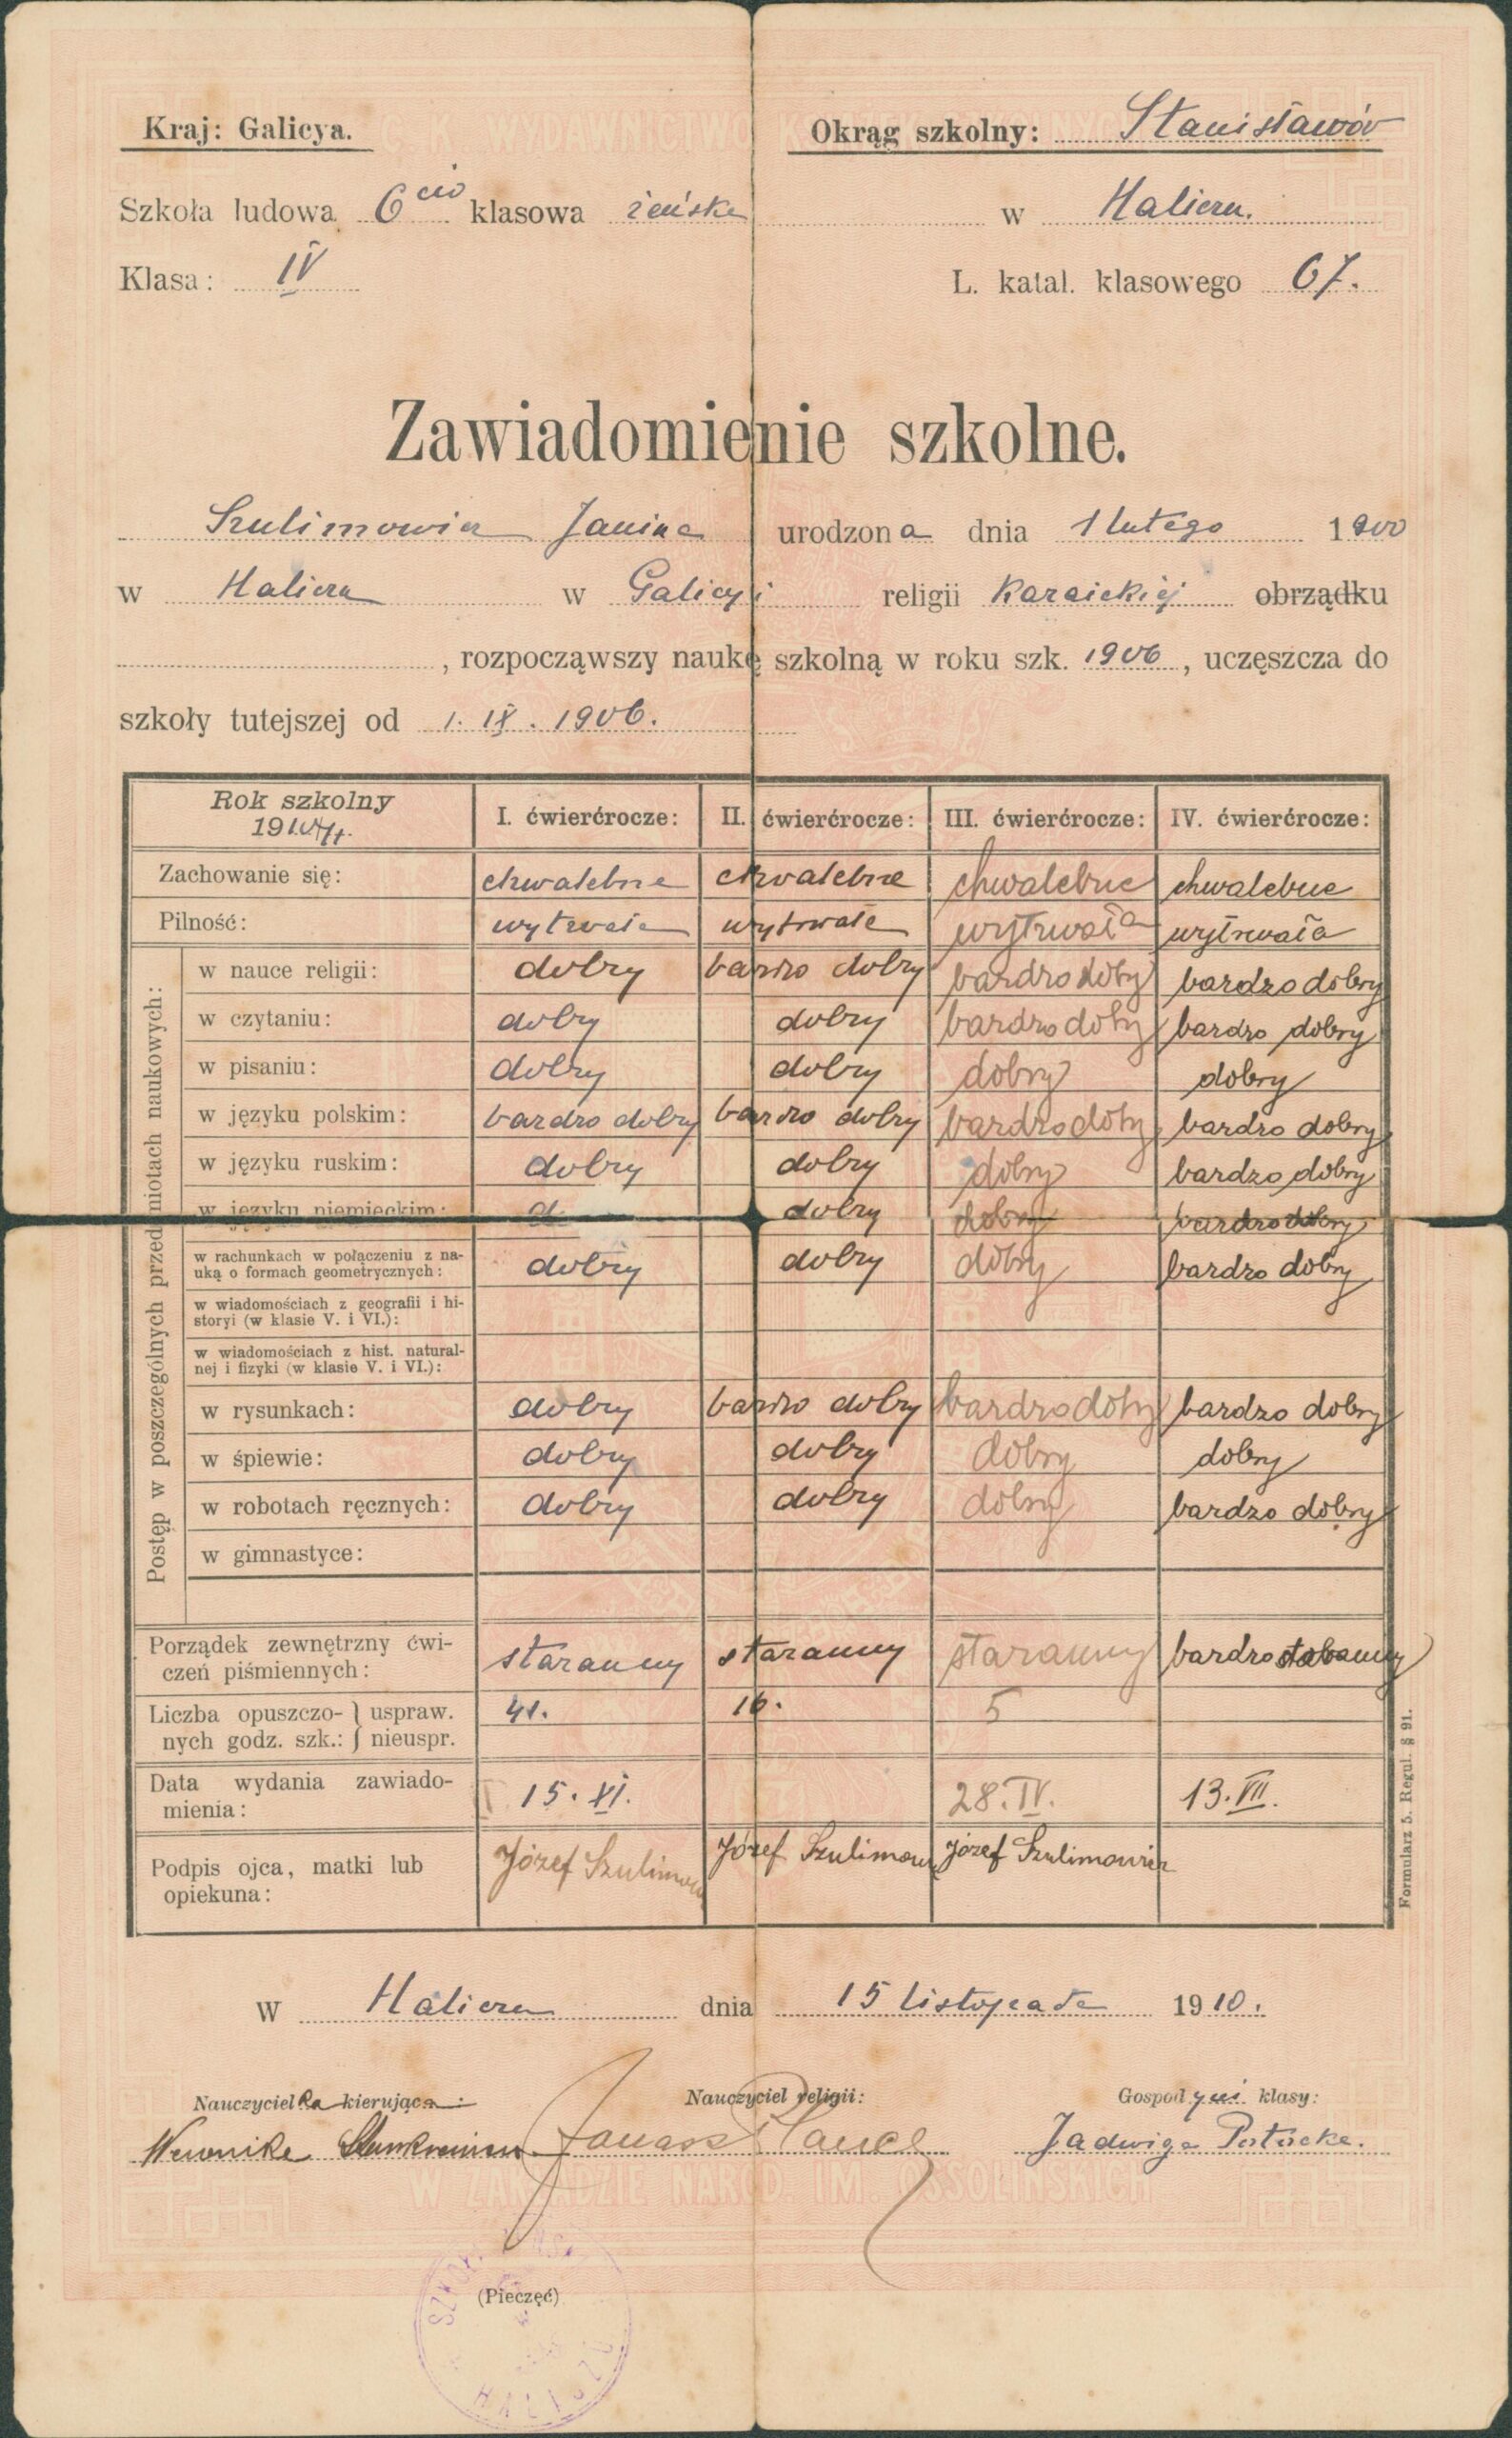 Kraj: Galicya.
Okrąg szkolny: Stanisławów
Szkoła ludowa 6cio klasowa żeńska w Haliczu.
Klasa: IV
L. katal. klasowego 67.
Zawiadomienie szkolne.
Szulimowicz Janina urodzona dnia 1 lutego 1900
w Haliczu w Galicyi religii Karaickiej obrządku
, rozpocząwszy naukę szkolną w roku szk. 1906, uczęszcza do
szkoły tutejszej od 1. IX. 1906.
Rok szkolny I. ćwierćrocze: II. ćwierćrocze: III. ćwierćrocze: IV. ćwierćrocze:
1910/11.
Zachowanie się: chwalebne chwalebne chwalebne chwalebne
Pilność: wytrwała wytrwała wytrwała wytrwała
Postęp w poszczególnych przedmiotach naukowych:
w nauce religii: dobry bardzo dobry bardzo dobry bardzo dobry
w czytaniu: dobry dobry bardzo dobry bardzo dobry
w pisaniu: dobry dobry dobry dobry
w języku polskim: bardzo dobry bardzo dobry bardzo dobry bardzo dobry
w języku ruskim: dobry dobry dobry bardzo dobry
w języku niemieckim: d dobry dobry bardzo dobry
w rachunkach w połączeniu z na-
uką o formach geometrycznych: dobry dobry dobry bardzo dobry
w wiadomościach z geografii i hi-
storyi (w klasie V. i VI.):
w wiadomościach z hist. natural-
nej i fizyki (w klasie V. i VI.):
w rysunkach: dobry bardzo dobry bardzo dobry bardzo dobry
w śpiewie: dobry dobry dobry dobry
w robotach ręcznych: dobry dobry dobry bardzo dobry
w gimnastyce:
Porządek zewnętrzny ćwi-
czeń piśmiennych: staranny staranny staranny bardzo staranny
Liczba opuszczo- uspraw. 41. 16. 5
nych godz. szk.: nieuspr.
Data wydania zawiado-
mienia: 15. XI. 28. IV. 13. VII.
Podpis ojca, matki lub
opiekuna: Józef Szulimow Józef Szulimow Józef Szulimowicz
Formularz 5. Regul. § 91.
W Haliczu dnia 15 listopada 1910.
Nauczycielka kierująca: Nauczyciel religii: Gospodyni klasy:
Weronika Janasz Jadwiga Potocka.
W ZAKŁADZIE NAROD. IM. OSSOLIŃSKICH
(Pieczęć)